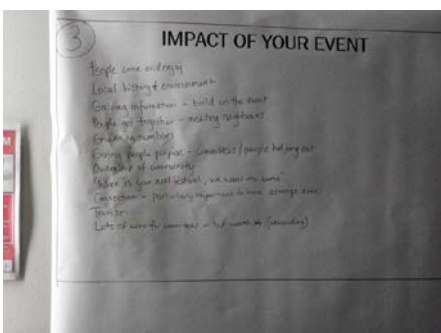 3
IMPACT OF YOUR EVENT
People come and enjoy
Local history & environment
Gaining information - build on the event
People get together - meeting neighbours
Growing numbers
Giving people purpose - committees / people helping out
Ownership of community
"When is your next festival, we want to come"
Connection - particularly important in more
Tourism
Lots of work for committees - but worth it (rewarding)